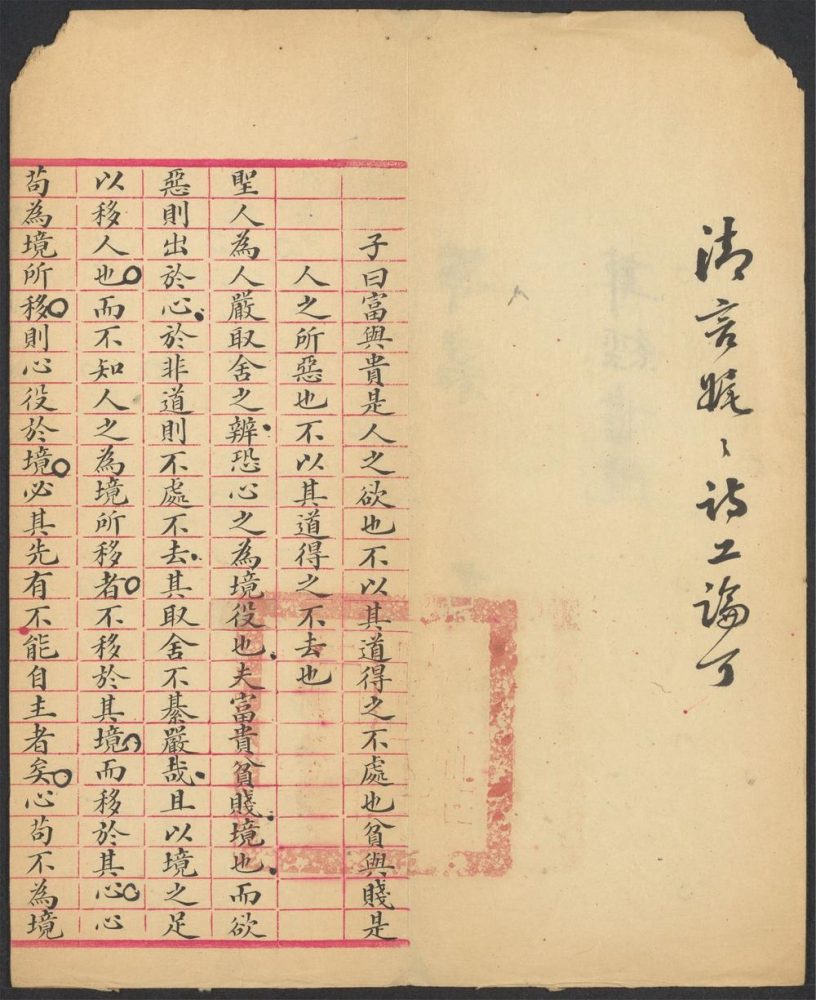 清言娓〻詩工論可
子曰富與貴是人之欲也不以其道得之不處也貧與賤是
人之所惡也不以其道得之不去也
聖人為人嚴取舍之辨恐心之為境役也夫富貴貧賤境也而欲
惡則出於心於非道則不處不去其取舍不綦嚴哉且以境之足
以移人也而不知人之為境所移者不移於其境而移於其心心
苟為境所移則心役於境必其先有不能自主者矣心苟不為境